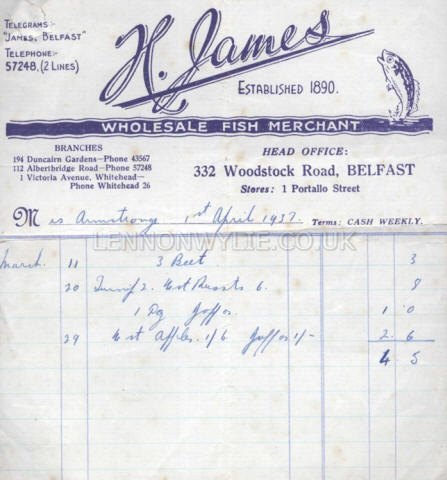 TELEGRAMS:-
"JAMES, BELFAST"
TELEPHONE:-
57248, (2 LINES)
H. James
ESTABLISHED 1890.
WHOLESALE FISH MERCHANT
BRANCHES
194 Duncairn Gardens—Phone 43567
112 Albertbridge Road—Phone 57248
1 Victoria Avenue, Whitehead—
Phone Whitehead 26
HEAD OFFICE:
332 Woodstock Road, BELFAST
Stores: 1 Portallo Street
Mrs Armstrong 1st April 1937. Terms: CASH WEEKLY.
LENNONWYLIE.CO.UK
March 11 3 Beet 3
20 2. 6. 8
1 1 0
29 Apples 1/6 1/- 2. 6
4 5